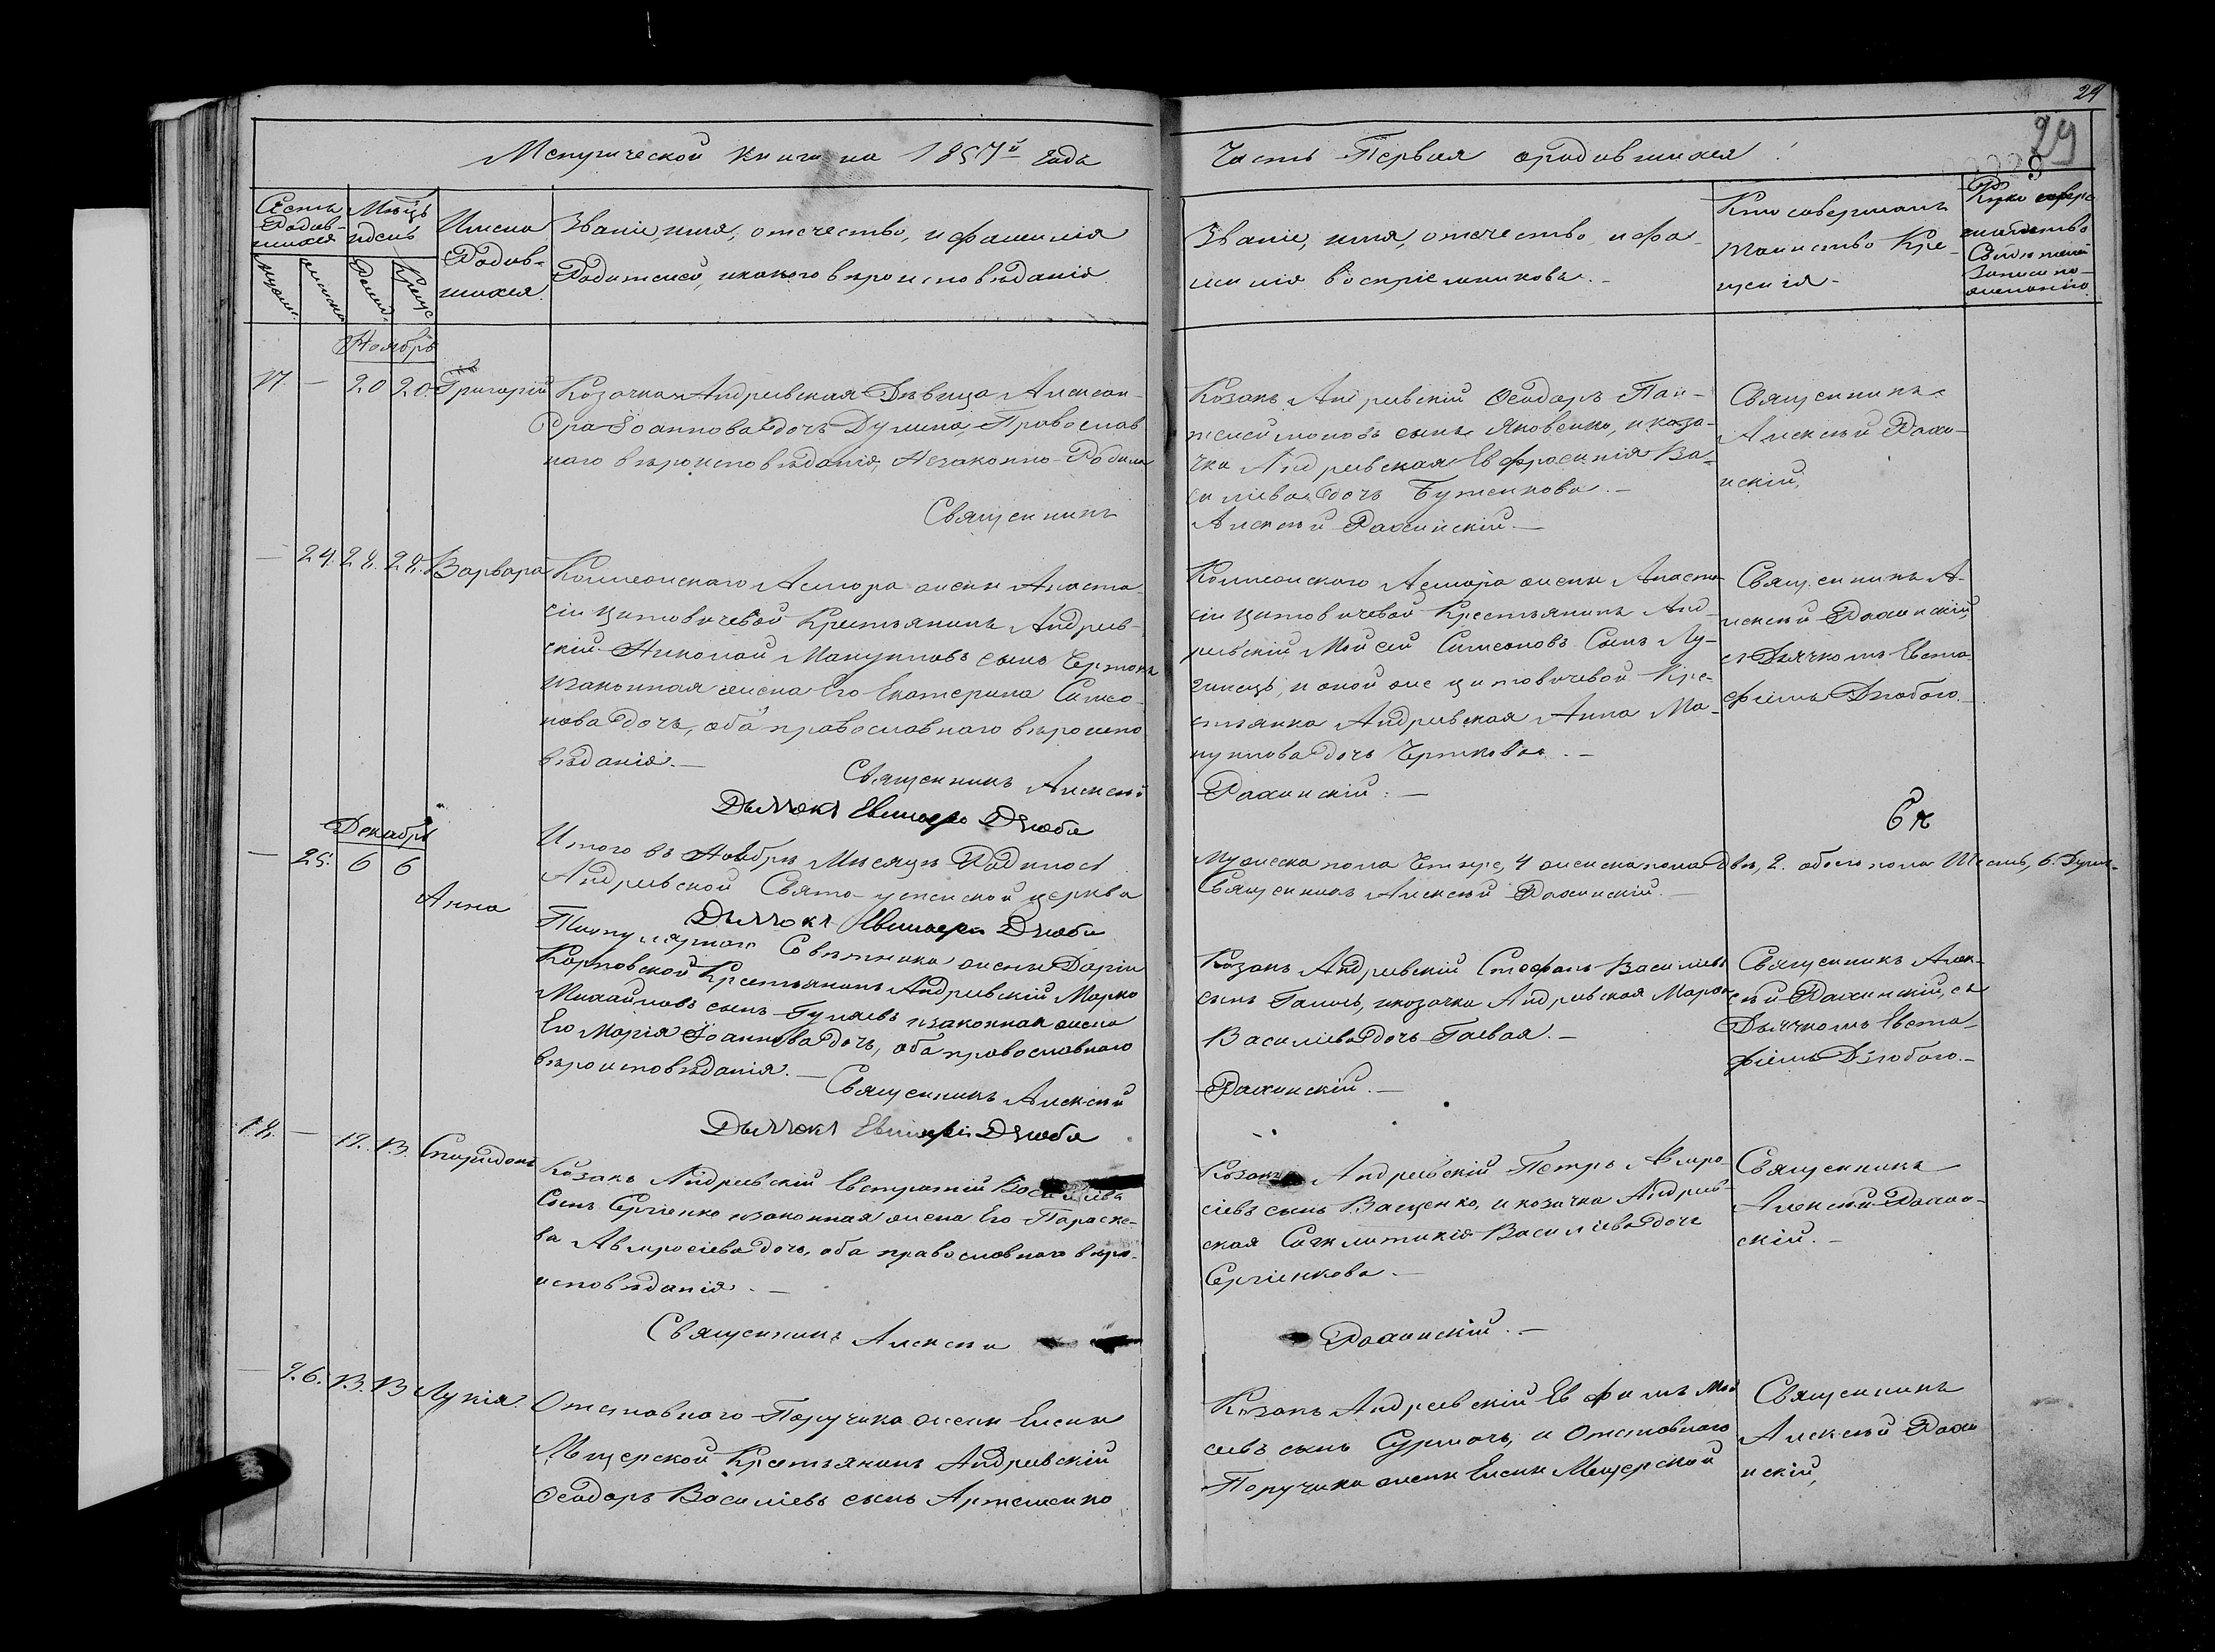 29
29
Метрической книги на 1857й годъ
Часть Первая о родившихся
Счетъ родившихся
Мѣсяцъ и день
Имена
Родив-
шихся
Званіе, имя, отечество, и фамилія
Родителей, и какого вѣроисповѣданія
Званіе, имя, отечество и фа-
милія воспріемниковъ.-
Кто совершалъ
таинство Кре-
щенія-
Ноябрь
17. - 20 20. Григорій
Козачка Андреевская Дѣвица Алексан-
дра Іоаннова дочь Дулина, Православ
наго вѣроисповѣданія, Незаконно-Родила
Священникъ
Козакъ Андреевскій Ѳеодоръ Пан-
телеймоновъ сынъ Яковенко, и коза-
чка Андреевская Евфросинія Ва-
силіева дочь Бутенкова.-
Алексѣй Рахинскій.-
Священникъ
Алексѣй Рахи-
нскій,
- 24. 28. 28. Варвара
Коллежскаго Асессора жены Анаста-
сіи Цитовичевой Крестьянинъ Андреев-
скій Николай Макухновъ сынъ Чертокъ
и законная жена его Екатерина Симео-
нова дочь, оба православнаго вѣроиспо
вѣданія.-
Священникъ Алексѣй
Дьячокъ Евстафій Дзюба
Коллежскаго Асессора жены Анаста
сіи Цитовичевой Крестьянинъ Анд-
реевскій Мойсей Симеоновъ Сынъ Лу-
ценко, и оной же Цитовичевой Кре-
стьянка Андреевская Анна Ма-
дочь Черткова.-
Рахинскій.-
Священникъ А-
лексѣй Рахинскій,
съ Дьячкомъ Евста-
фіемъ Дзюбого.-
Итого въ Ноябрѣ Мѣсяцѣ Родилось
Андреевской Свято- церкви
Дьячокъ Евстафій Дзюба
Мужеска пола Четыре, 4 женска пола Двѣ, 2. обоего пола Шесть, 6. Душъ.
Священникъ Алексѣй Рахинскій.-
Декабрь
- 25. 6 6 Анна
Титулярнаго Совѣтника жены Даріи
Карповской Крестьянинъ Андреевскій Марко
Михайловъ сынъ Гуляевъ и законная жена
Его Марія Іоаннова дочь, оба православнаго
вѣроисповѣданія.-
Священникъ Алексѣй
Дьячокъ Евстафій Дзюба
Козакъ Андреевскій Стефанъ Василіевъ
сынъ и козачка Андреевская Марѳа
Василіева дочь Гаевая.-
Рахинскій.-
Священникъ Алек-
сѣй Рахинскій, съ
Дьячкомъ Евста-
фіемъ Дзюбого.-
18. - 12. 13. Спиридонъ
Козакъ Андреевскій Евстратій Василіевъ
Сынъ Сергіенко и законная жена Его Параске-
ва Амвросіева дочь, оба православнаго вѣро-
исповѣданія.-
Священникъ Алексѣй
Козакъ Андреевскій Петръ Амвро-
сіевъ сынъ Ващенко, и козачка Андреев-
ская Синклитикія Василіева дочь
Сергіенкова.-
Рахинскій.-
Священникъ
Алексѣй Рахин-
скій.-
- 26. 13. 13 Лукія.
Отставнаго Поручика жены Елены
Мещерской Крестьянинъ Андреевскій
Ѳеодоръ Василіевъ сынъ Артеменко
Козакъ Андреевскій Евфимъ Мой
сеевъ сынъ Сурмачъ, и Отставнаго
Поручика жены Елены Мещерской
Священникъ
Алексѣй Рахи
нскій,